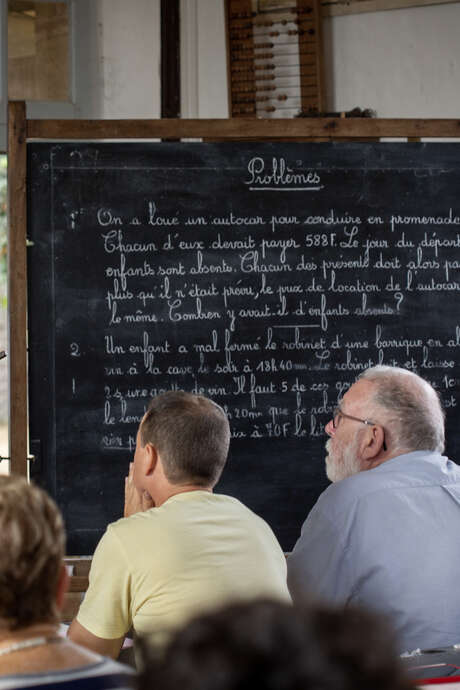 Problèmes
1° On a loué un autocar pour conduire en promenade
Chacun d'eux devait payer 588F. Le jour du départ
enfants sont absents. Chacun des présents doit alors pa
plus qu'il n'était prévu, le prix de location de l'autocar
le même. Combien y avait-il d'enfants absents?
2. Un enfant a mal fermé le robinet d'une barrique, en al
vin à la cave le soir à 18h40mn. Le robinet fuit et laisse
2s, une goutte de vin. Il faut 5 de ces gou
le len 20mn que le rob
vin à 70F le li